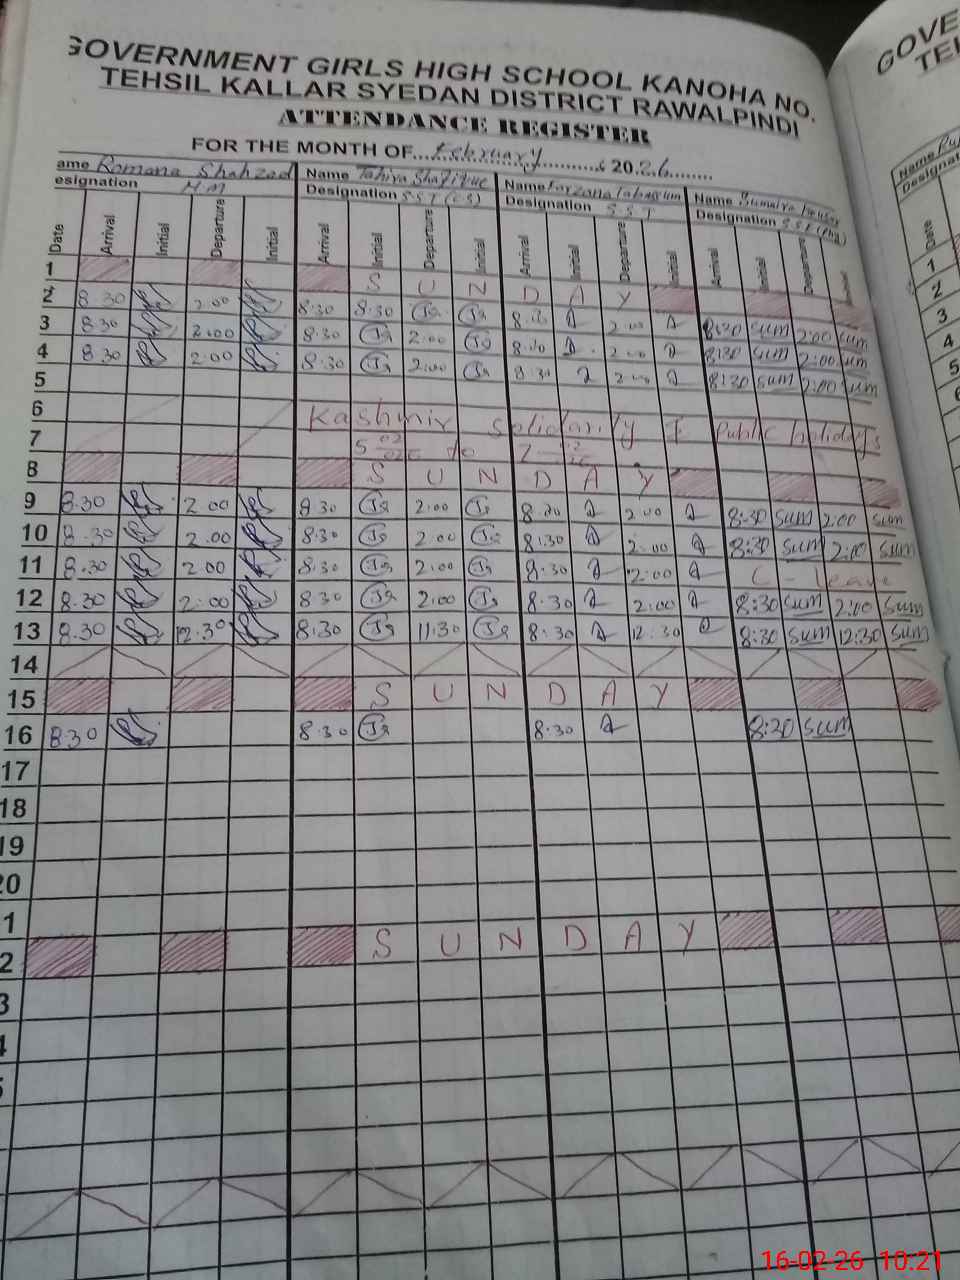 GOVERNMENT GIRLS HIGH SCHOOL KANOHA NO.
TEHSIL KALLAR SYEDAN DISTRICT RAWALPINDI
ATTENDANCE REGISTER
FOR THE MONTH OF February 2026
ame Romana Shahzad Name Tahira Shafique Name Farzana Tabassum Name Sumaira
esignation HM Designation SST (CS) Designation SST Designation SST (Phy)
Date Arrival Initial Departure Initial Arrival Initial Departure Initial Arrival Initial Departure Initial Arrival Initial Departure
1 S U N D A Y
2 8 30 2.00 8:30 8:30 8:30 2.00 8:30 sum 2:00 sum
3 8:30 2:00 8:30 2:00 8:30 2:00 8:30 sum 2:00 sum
4 8:30 2:00 8:30 2:00 8:30 2:00 8:30 sum 2:00 sum
5
6 Kashmir solidarity & Public holidays
7 5 to 7
8 S U N D A Y
9 8.30 2.00 8 30 2:00 8:30 2:00 8:30 sum 2:00 sum
10 8.30 2.00 8:30 2:00 8:30 2:00 8:30 sum 2:00 sum
11 8.30 2.00 8:30 2:00 8:30 2:00 C - leave
12 8.30 2:00 8 30 2:00 8:30 2:00 8:30 sum 2:00 sum
13 8.30 12.30 8:30 11:30 8:30 12:30 8:30 sum 12:30 sum
14
15 S U N D A Y
16 8.30 8.30 8:30 8:30 sum
17
18
19
20
1
2 S U N D A Y
3
4
5
GOVE
TE
Name
Designat
Date
1
2
3
4
5
6
16-02-26 10:21